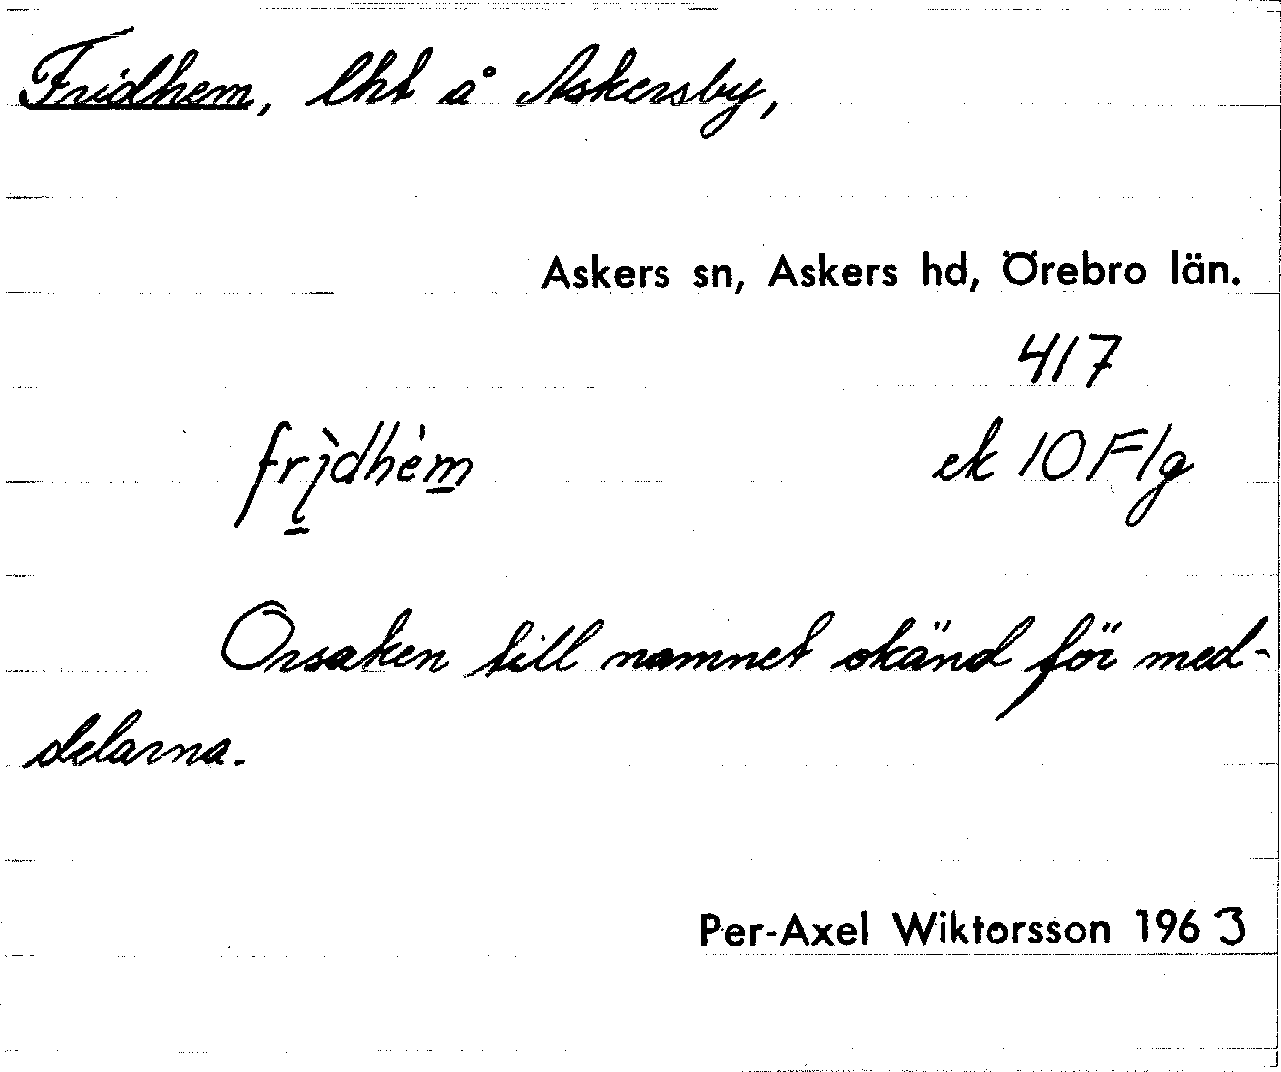 Fridhem, lht å Askersby,
Askers sn, Askers hd, Örebro län.
417
frı̀dhèm ek 10F1g
Orsaken till namnet okänd för med-
delarna.
Per-Axel Wiktorsson 1963